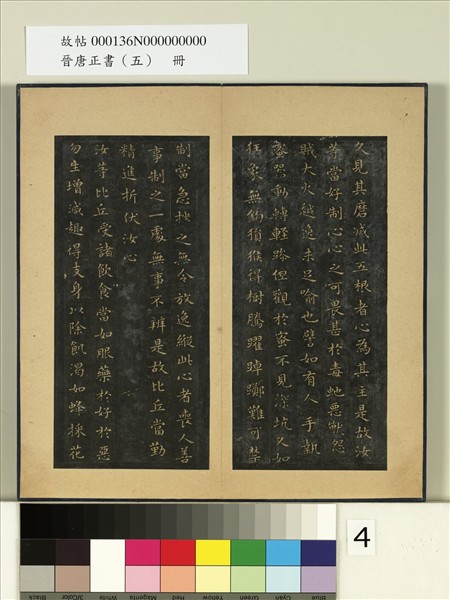 故帖 000136N000000000
晉唐正書（五） 冊
久見其磨滅此五根者心為其主是故汝
等當好制心心之可畏甚於毒蛇惡獸怨
賊大火越逸未足喻也譬如有人手執
蜜器動轉輕躁但觀於蜜不見深坑又如
狂象無鉤猨猴得樹騰躍踔躑難可禁
制當急挫之無令放逸縱此心者喪人善
事制之一處無事不辨是故比丘當勤
精進折伏汝心
汝等比丘受諸飲食當如服藥於好於惡
勿生增減趣得支身以除飢渴如蜂採花
4
Blue Cyan Green Yellow Red Magenta White 3/Color Black